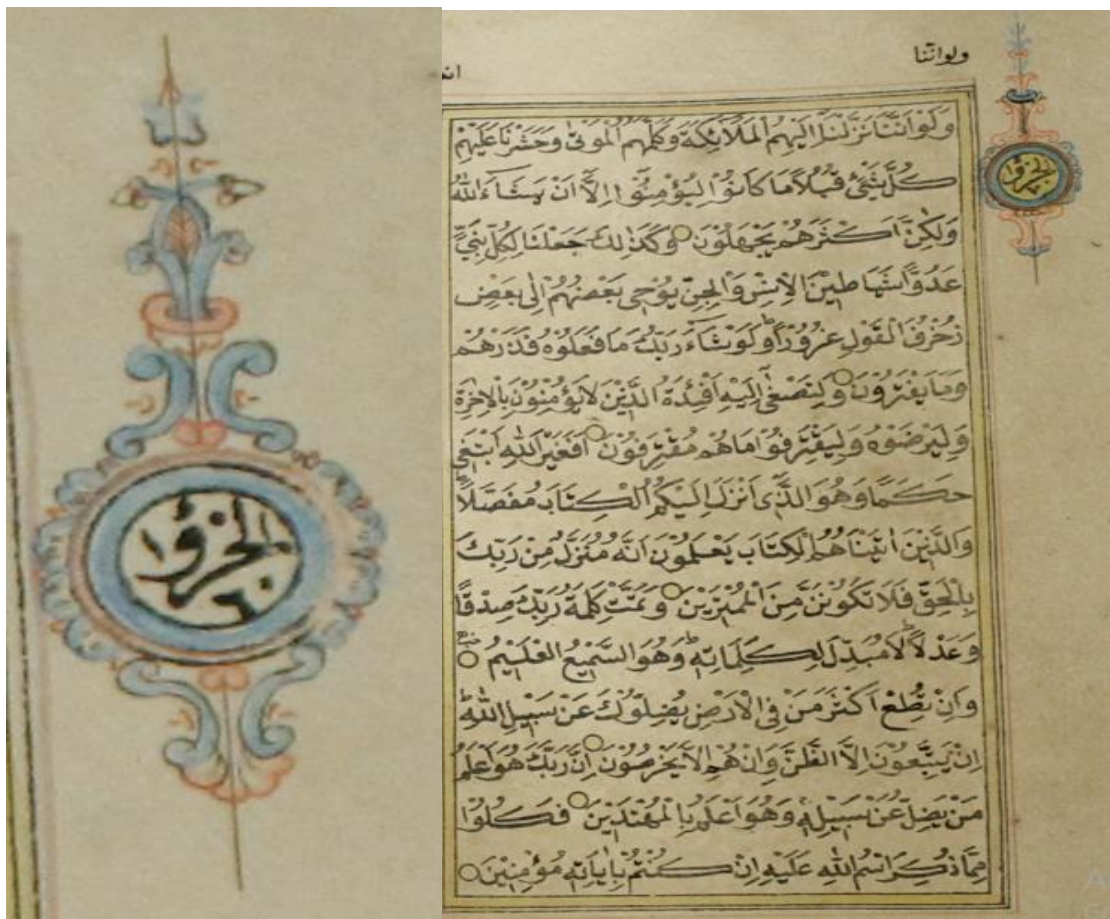 ولواننا
وَلَوْ اَنَّنَا نَزَّلْنَا اِلَيْهِمُ الْمَلَائِكَةَ وَكَلَّمَهُمُ الْمَوْتٰى وَحَشَرْنَا عَلَيْهِمْ
كُلَّ شَيْءٍ قُبُلًا مَا كَانُوا لِيُؤْمِنُوا اِلَّا اَنْ يَشَاءَ اللّٰهُ
وَلٰكِنَّ اَكْثَرَهُمْ يَجْهَلُونَ وَكَذٰلِكَ جَعَلْنَا لِكُلِّ نَبِيٍّ
عَدُوًّا شَيَاطِينَ الْاِنْسِ وَالْجِنِّ يُوحِى بَعْضُهُمْ اِلٰى بَعْضٍ
زُخْرُفَ الْقَوْلِ غُرُورًا وَلَوْ شَاءَ رَبُّكَ مَا فَعَلُوهُ فَذَرْهُمْ
وَمَا يَفْتَرُونَ وَلِتَصْغٰى اِلَيْهِ اَفْئِدَةُ الَّذِينَ لَا يُؤْمِنُونَ بِالْاٰخِرَةِ
وَلِيَرْضَوْهُ وَلِيَقْتَرِفُوا مَا هُمْ مُقْتَرِفُونَ اَفَغَيْرَ اللّٰهِ اَبْتَغِى
حَكَمًا وَهُوَ الَّذِى اَنْزَلَ اِلَيْكُمُ الْكِتَابَ مُفَصَّلًا
وَالَّذِينَ اٰتَيْنَاهُمُ الْكِتَابَ يَعْلَمُونَ اَنَّهُ مُنَزَّلٌ مِنْ رَبِّكَ
بِالْحَقِّ فَلَا تَكُونَنَّ مِنَ الْمُمْتَرِينَ وَتَمَّتْ كَلِمَةُ رَبِّكَ صِدْقًا
وَعَدْلًا لَا مُبَدِّلَ لِكَلِمَاتِهِ وَهُوَ السَّمِيعُ الْعَلِيمُ
وَاِنْ تُطِعْ اَكْثَرَ مَنْ فِى الْاَرْضِ يُضِلُّوكَ عَنْ سَبِيلِ اللّٰهِ
اِنْ يَتَّبِعُونَ اِلَّا الظَّنَّ وَاِنْ هُمْ اِلَّا يَخْرُصُونَ اِنَّ رَبَّكَ هُوَ اَعْلَمُ
مَنْ يَضِلُّ عَنْ سَبِيلِهِ وَهُوَ اَعْلَمُ بِالْمُهْتَدِينَ فَكُلُوا
مِمَّا ذُكِرَ اسْمُ اللّٰهِ عَلَيْهِ اِنْ كُنْتُمْ بِاٰيَاتِهِ مُؤْمِنِينَ